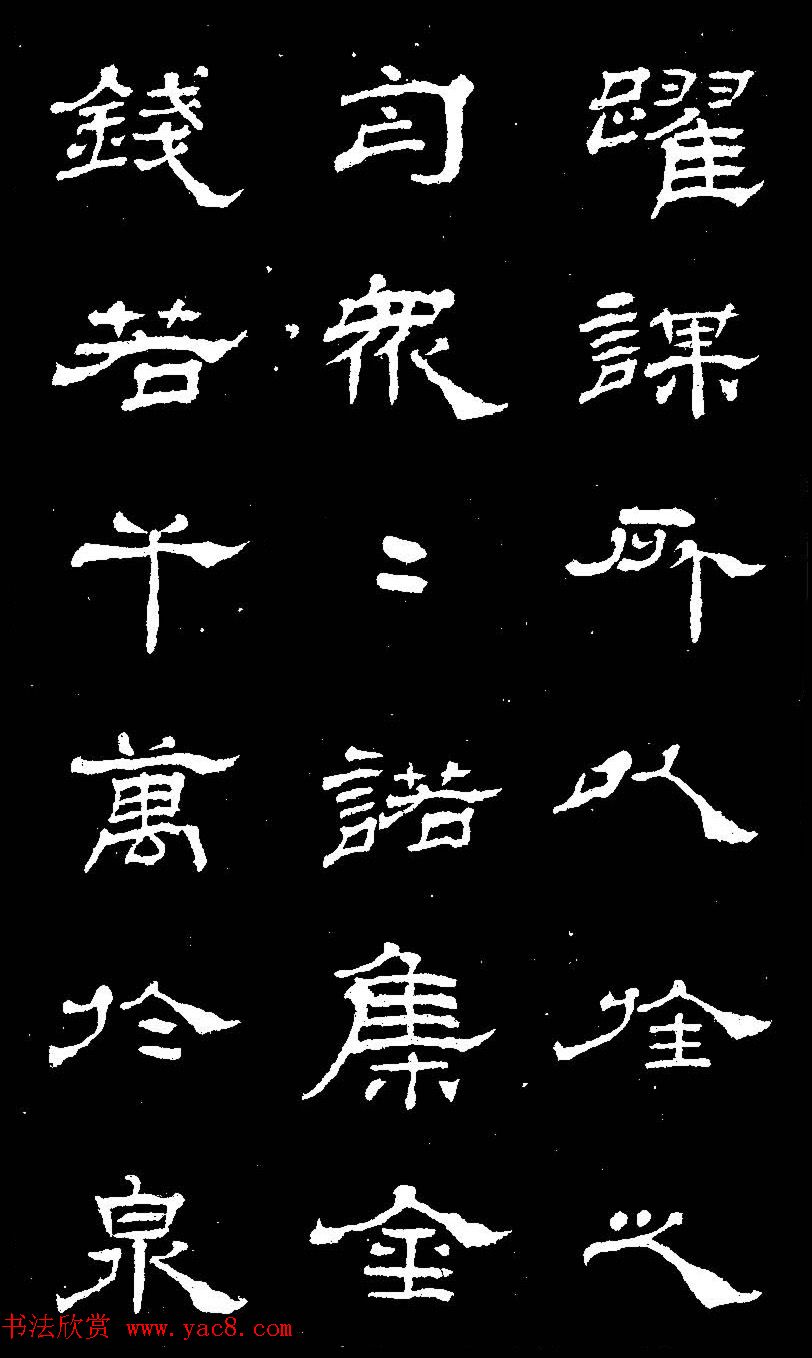 躍謀所以旌之
訇衆〻諾集金
錢若干萬於泉
书法欣赏 www.yac8.com